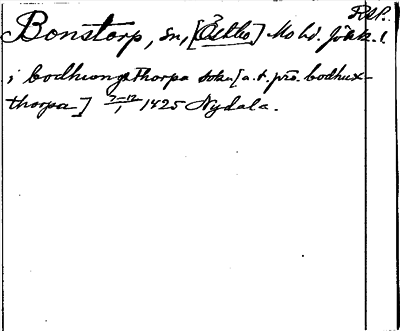 RAP.
Bonstorp, sn, [Östbo] Mo hd. Jönk. l.
i bodhiungxthorpa sokn [a. t. pro. bodhux-
thorpa] 2-12/1 1425 Nydala.